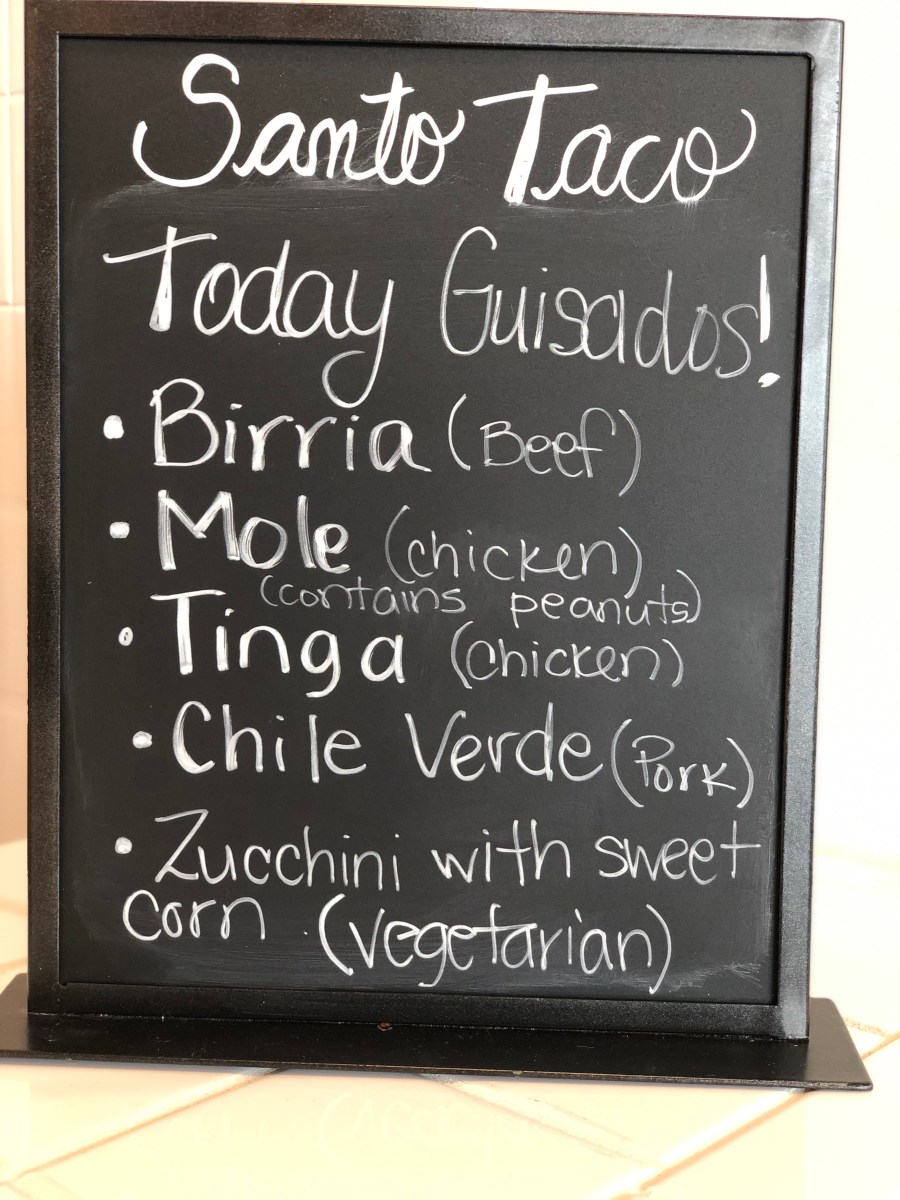 Santo Taco
Today Guisados!
• Birria (Beef)
• Mole (chicken)
(contains peanuts)
• Tinga (chicken)
• Chile Verde (Pork)
• Zucchini with sweet
corn (vegetarian)